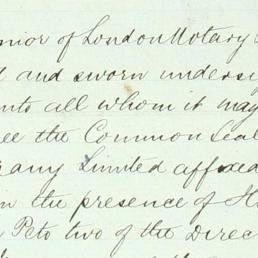 nior of London Notary
and sworn undersi
unto all whom it may
ee the Common Seal
any Limited affixed
in the presence of H
Peto two of the Direc